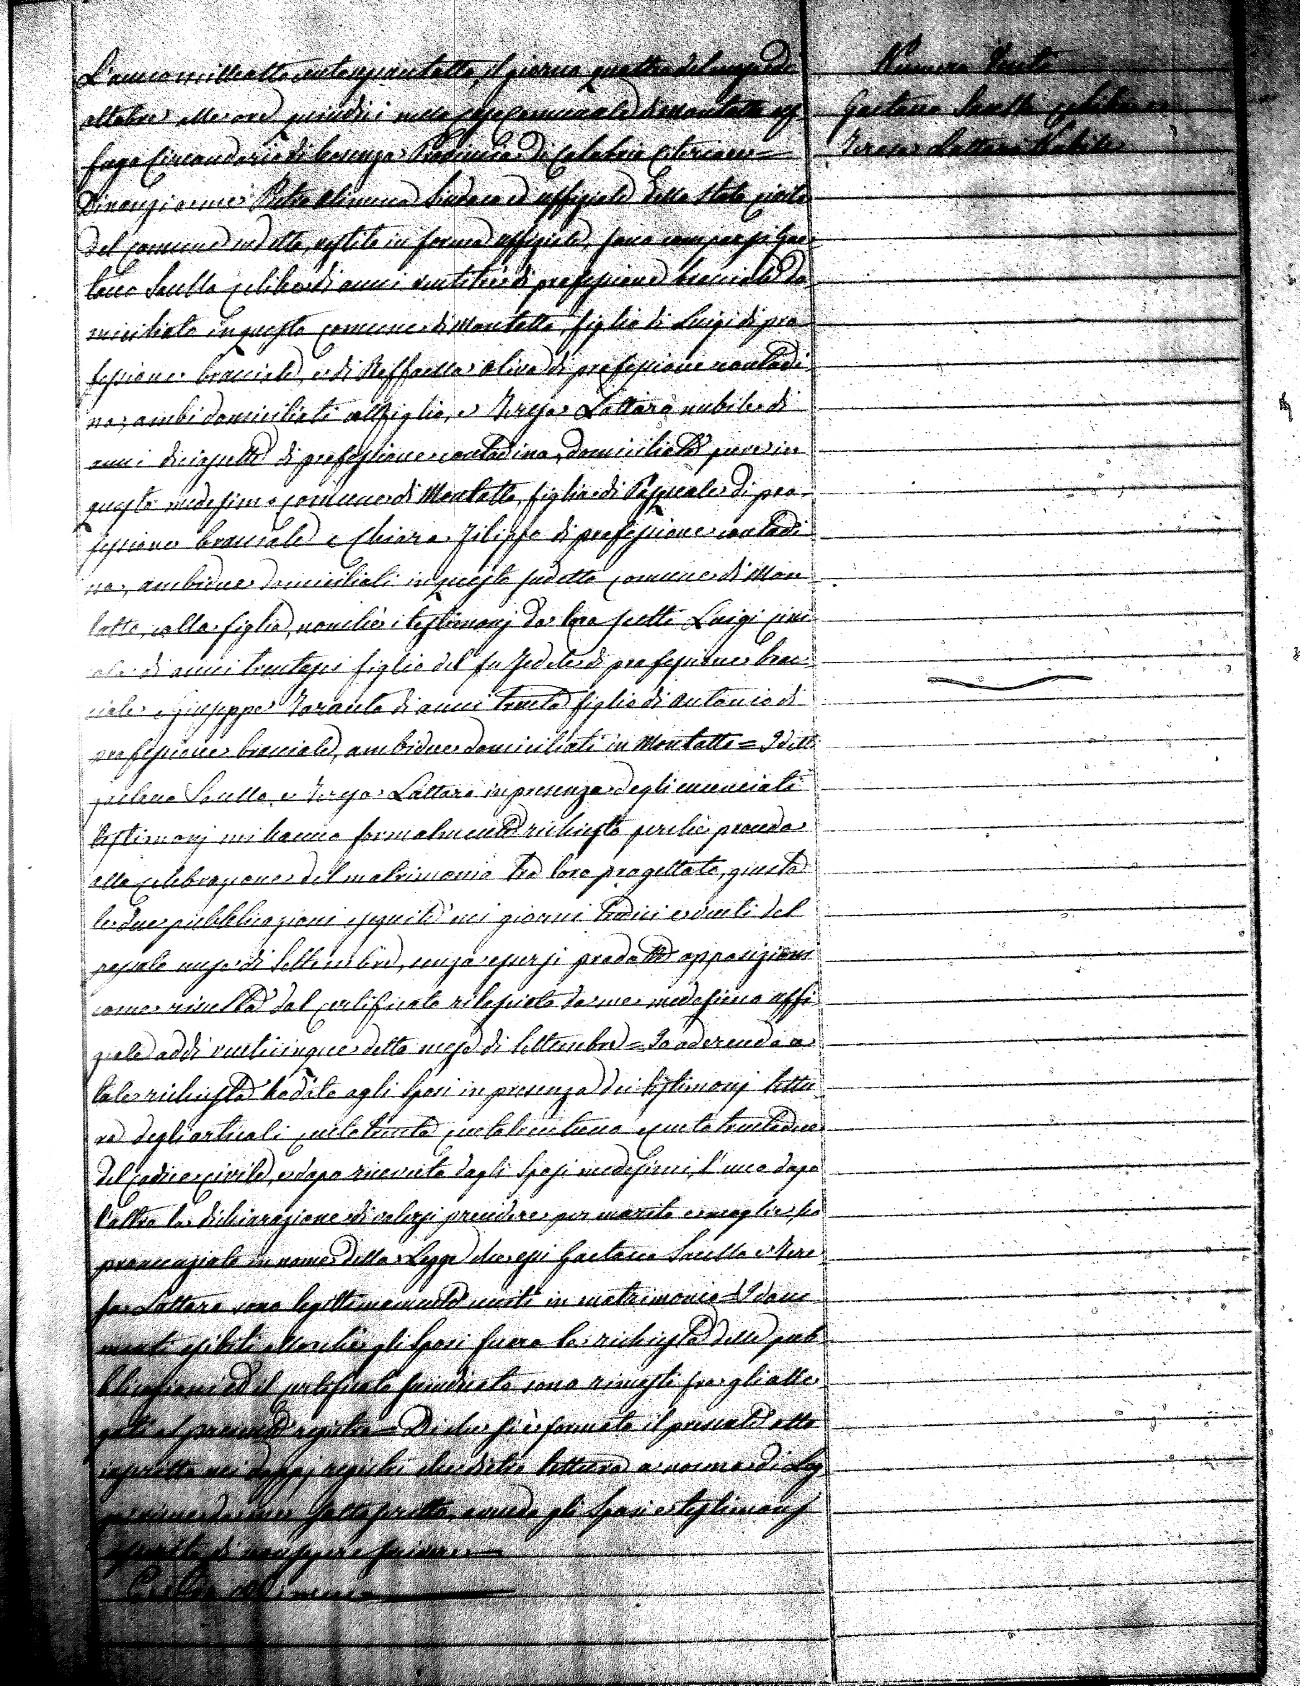 L'anno milleottocentosessantotto, il giorno quattro del mese di
ottobre alle ore quindici nella casa comunale di Montalto uf
fugo Circondario di Cosenza Provincia di Calabria Citeriore =
Dinanzi a me Pietro Alimena Sindaco ed uffiziale dello stato civile
del comune indetto, vestito in forma uffiziale, sono comparsi Gae
tano Sacella celibe di anni ventitre di professione bracciale do
miciliato in questo comune di Montalto, figlio di Luigi di pro
fessione bracciale, e di Raffaella Oliva di professione contadi
na, ambi domiciliati col figlio, e Teresa Lattaro nubile di
anni diciassette di professione contadina, domiciliata pure in
questo medesimo comune di Montalto, figlia di Pasquale di pro
fessione bracciale e Chiara Filippo di professione contadi
na, ambidue domiciliati in questo sudetto comune di Mon
talto, colla figlia, nonchè i testimonj da loro scelti Luigi
di anni trentasei figlio del fu Fedele di professione brac
ciale e Giuseppe Taranto di anni trenta figlio di Antonio di
professione bracciale, ambidue domiciliati in Montalto = I detti
Sacella, e Teresa Lattaro in presenza degli enunciati
testimonj mi hanno formalmente richiesto perchè proceda
alla celebrazione del matrimonio tra loro progettato, giusta
le due pubblicazioni eseguite nei giorni tredici e venti del
passato mese di Settembre, senza essersi prodotto opposizioni
come risulta dal certificato rilasciato da me medesimo uffi
ziale addì venticinque detto mese di Settembre = Io aderendo a
tale richiesta ho dato agli sposi in presenza dei testimonj lettu
ra degli articoli centotrenta centotrentuno e centotrentadue
del codice civile, e dopo ricevuta dagli sposi medesimi, l'uno dopo
l'altro la dichiarazione di volersi prendere per marito e moglie, ho
pronunziato in nome della Legge che essi Gaetano Sacella e Tere
sa Lattaro sono legittimamente uniti in matrimonio = I docu
menti esibiti allorchè gli sposi fecero la richiesta delle pub
blicazioni ed il certificato sono rimasti fra gli alle
gati al presente registro = Di che si è formato il presente atto
inscritto nei doppj registri che data lettura a norma di Leg
ge viene da me sottoscritto, avendo gli sposi e testimonj
asserito di non sapere firmare =
Pietro Alimena
Numero Venti
Gaetano Sacella celibe e
Teresa Lattaro Nubile